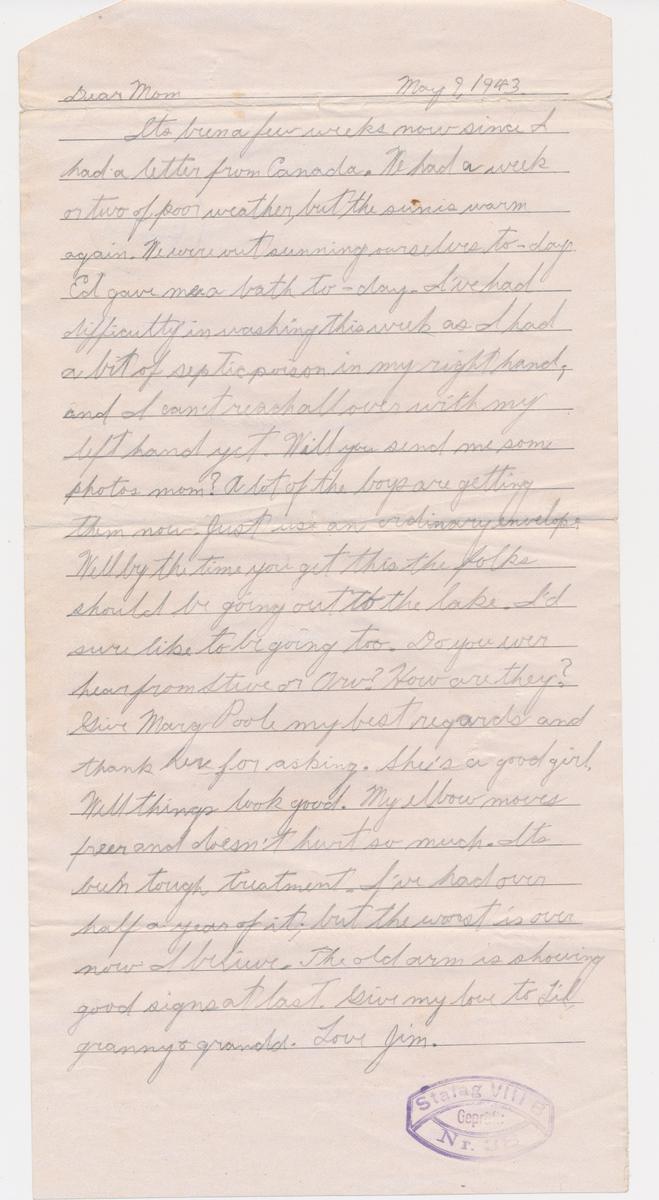 Dear Mom May 9, 1943.
Its been a few weeks now since I
had a letter from Canada. We had a week
or two of poor weather, but the sun is warm
again. We were out sunning ourselves to-day.
Ed gave me a bath to-day. I've had
difficulty in washing this week as I had
a bit of septic poison in my right hand,
and I can't reach all over with my
left hand yet. Will you send me some
photos mom? A lot of the boys are getting
them now. Just use an ordinary envelope.
Well by the time you get this the folks
should be going out to the lake. I'd
sure like to be going too. Do you ever
hear from Steve or Orv? How are they?
Give Marg Poole my best regards and
thank her for asking. She's a good girl.
Well things look good. My elbow moves
freer and doesn't hurt so much. Its
been tough treatment. I've had over
half a year of it, but the worst is over
now I believe. The old arm is showing
good signs at last. Give my love to Lil,
granny & grandd. Love Jim.
Stalag VIII B
Geprüft:
Nr.